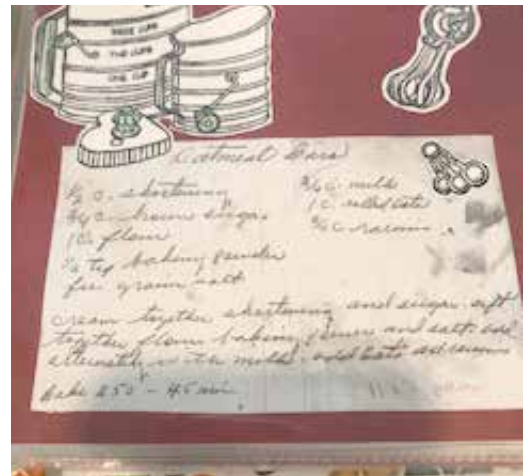 THREE CUPS
TWO CUPS
ONE CUP
Oatmeal Bars
1/2 c. shortening
3/4 c. brown sugar
1 c. flour
tsp baking powder
few grains salt
3/4 c. milk
1 c. rolled oats
3/4 c. raisins
cream together shortening and sugar. sift
together flour baking powder and salt. add
alternately with milk. add oats and raisins
bake 250 - 45 min.